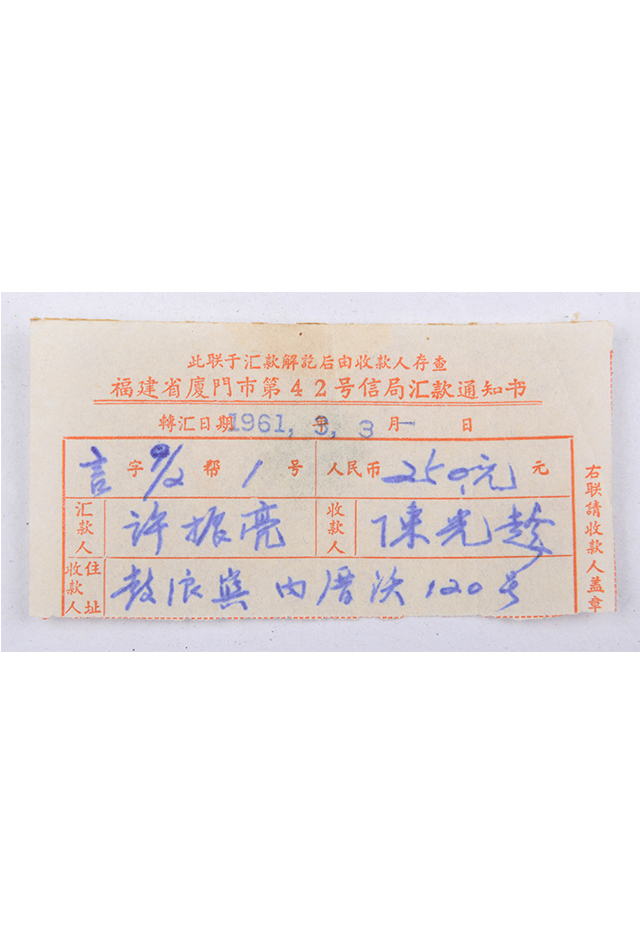 此联于汇款解訖后由收款人存查
福建省廈門市第42号信局汇款通知书
轉汇日期1961, 3, 3 年 月 一 日
言 字 9/2 帮 1 号 人民币 250元 元
汇款人 许振亮 收款人 陳光趁
收款人住址 鼓浪屿 内厝 120号
右联請收款人盖章